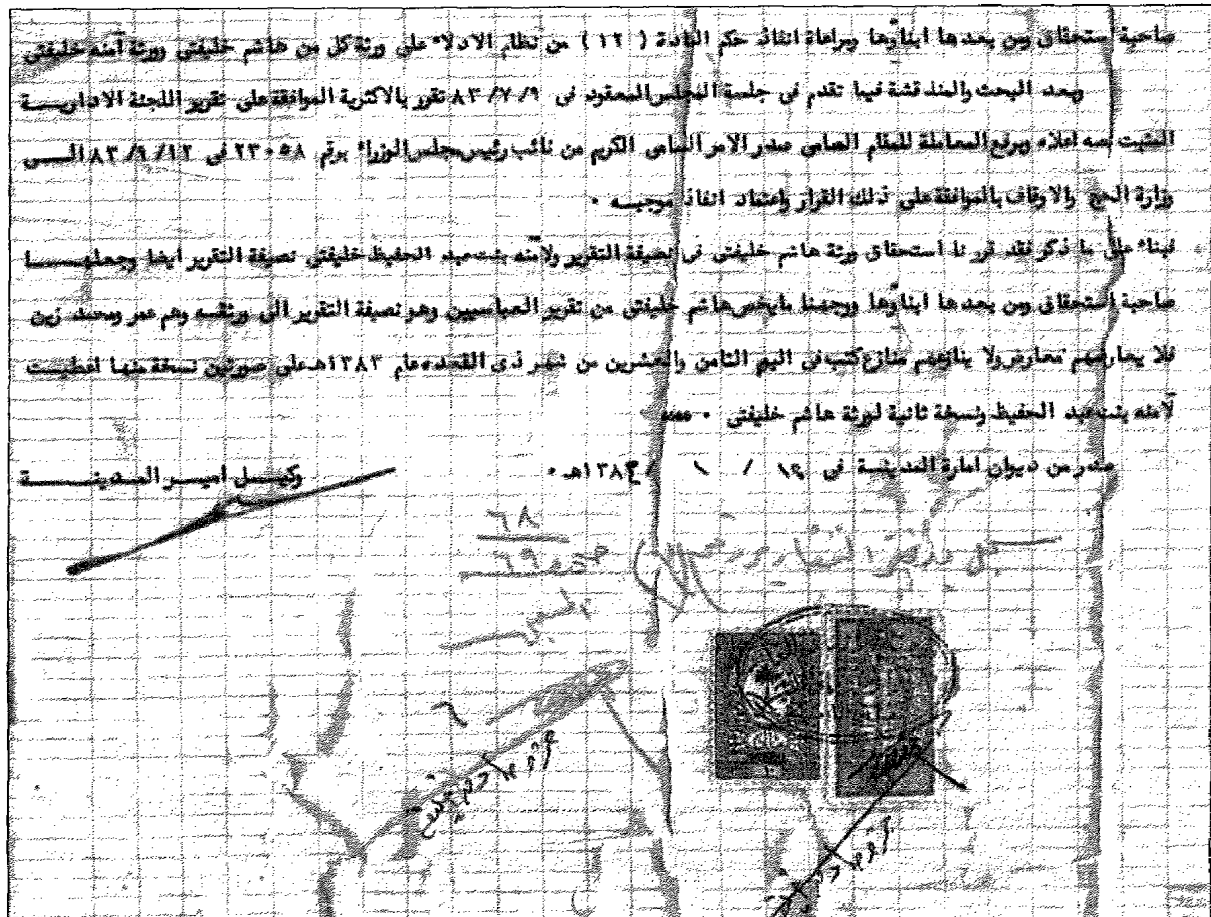 صاحبة استحقاق ومن بعدها ابناؤها وبراعاة انفاذ حكم المادة ( ١٢ ) من نظام الادلاء على ورثة كل من هاشم خليفتى وورثة آمنه خليفتى
وبعد البحث والمناقشة فيما تقدم فى جلسة المجلس المعقود فى ٨٣/٧/٩ تقرر بالاكثرية الموافقة على تقرير اللجنة الادارية
المثبت نصه اعلاه وبرفع المعاملة للمقام السامى صدر الامر السامى الكريم من نائب رئيس مجلس الوزراء برقم ٢٣٠٥٨ فى ٨٣/٩/١٢ الى
وزارة الحج والاوقاف بالموافقة على ذلك القرار واعتماد انفاذ موجبه ٠
فبناء على ما ذكر فقد قررنا استحقاق ورثة هاشم خليفتى فى نصيفة التقرير ولآمنه بنت عبد الحفيظ خليفتى نصيفة التقرير ايضا وجعلها
صاحبة استحقاق ومن بعدها ابناؤها ووجهنا مايخص هاشم خليفتى من تقرير العباسيين وهو نصيفة التقرير الى ورثته وهم عمر ومحمد زين
فلا يعارضهم معارض ولا ينازعهم منازع كتب فى اليوم الثامن والعشرين من شهر ذى القعده عام ١٣٨٣هـ على صورتين نسخة منها اعطيت
لآمنه بنت عبد الحفيظ ونسخة ثانية لورثة هاشم خليفتى ٠
صدر من ديوان امارة المدينة فى ١٤ / ١ / ١٣٨٤هـ ٠ وكيل امير المدينة
٦٨
٦٩